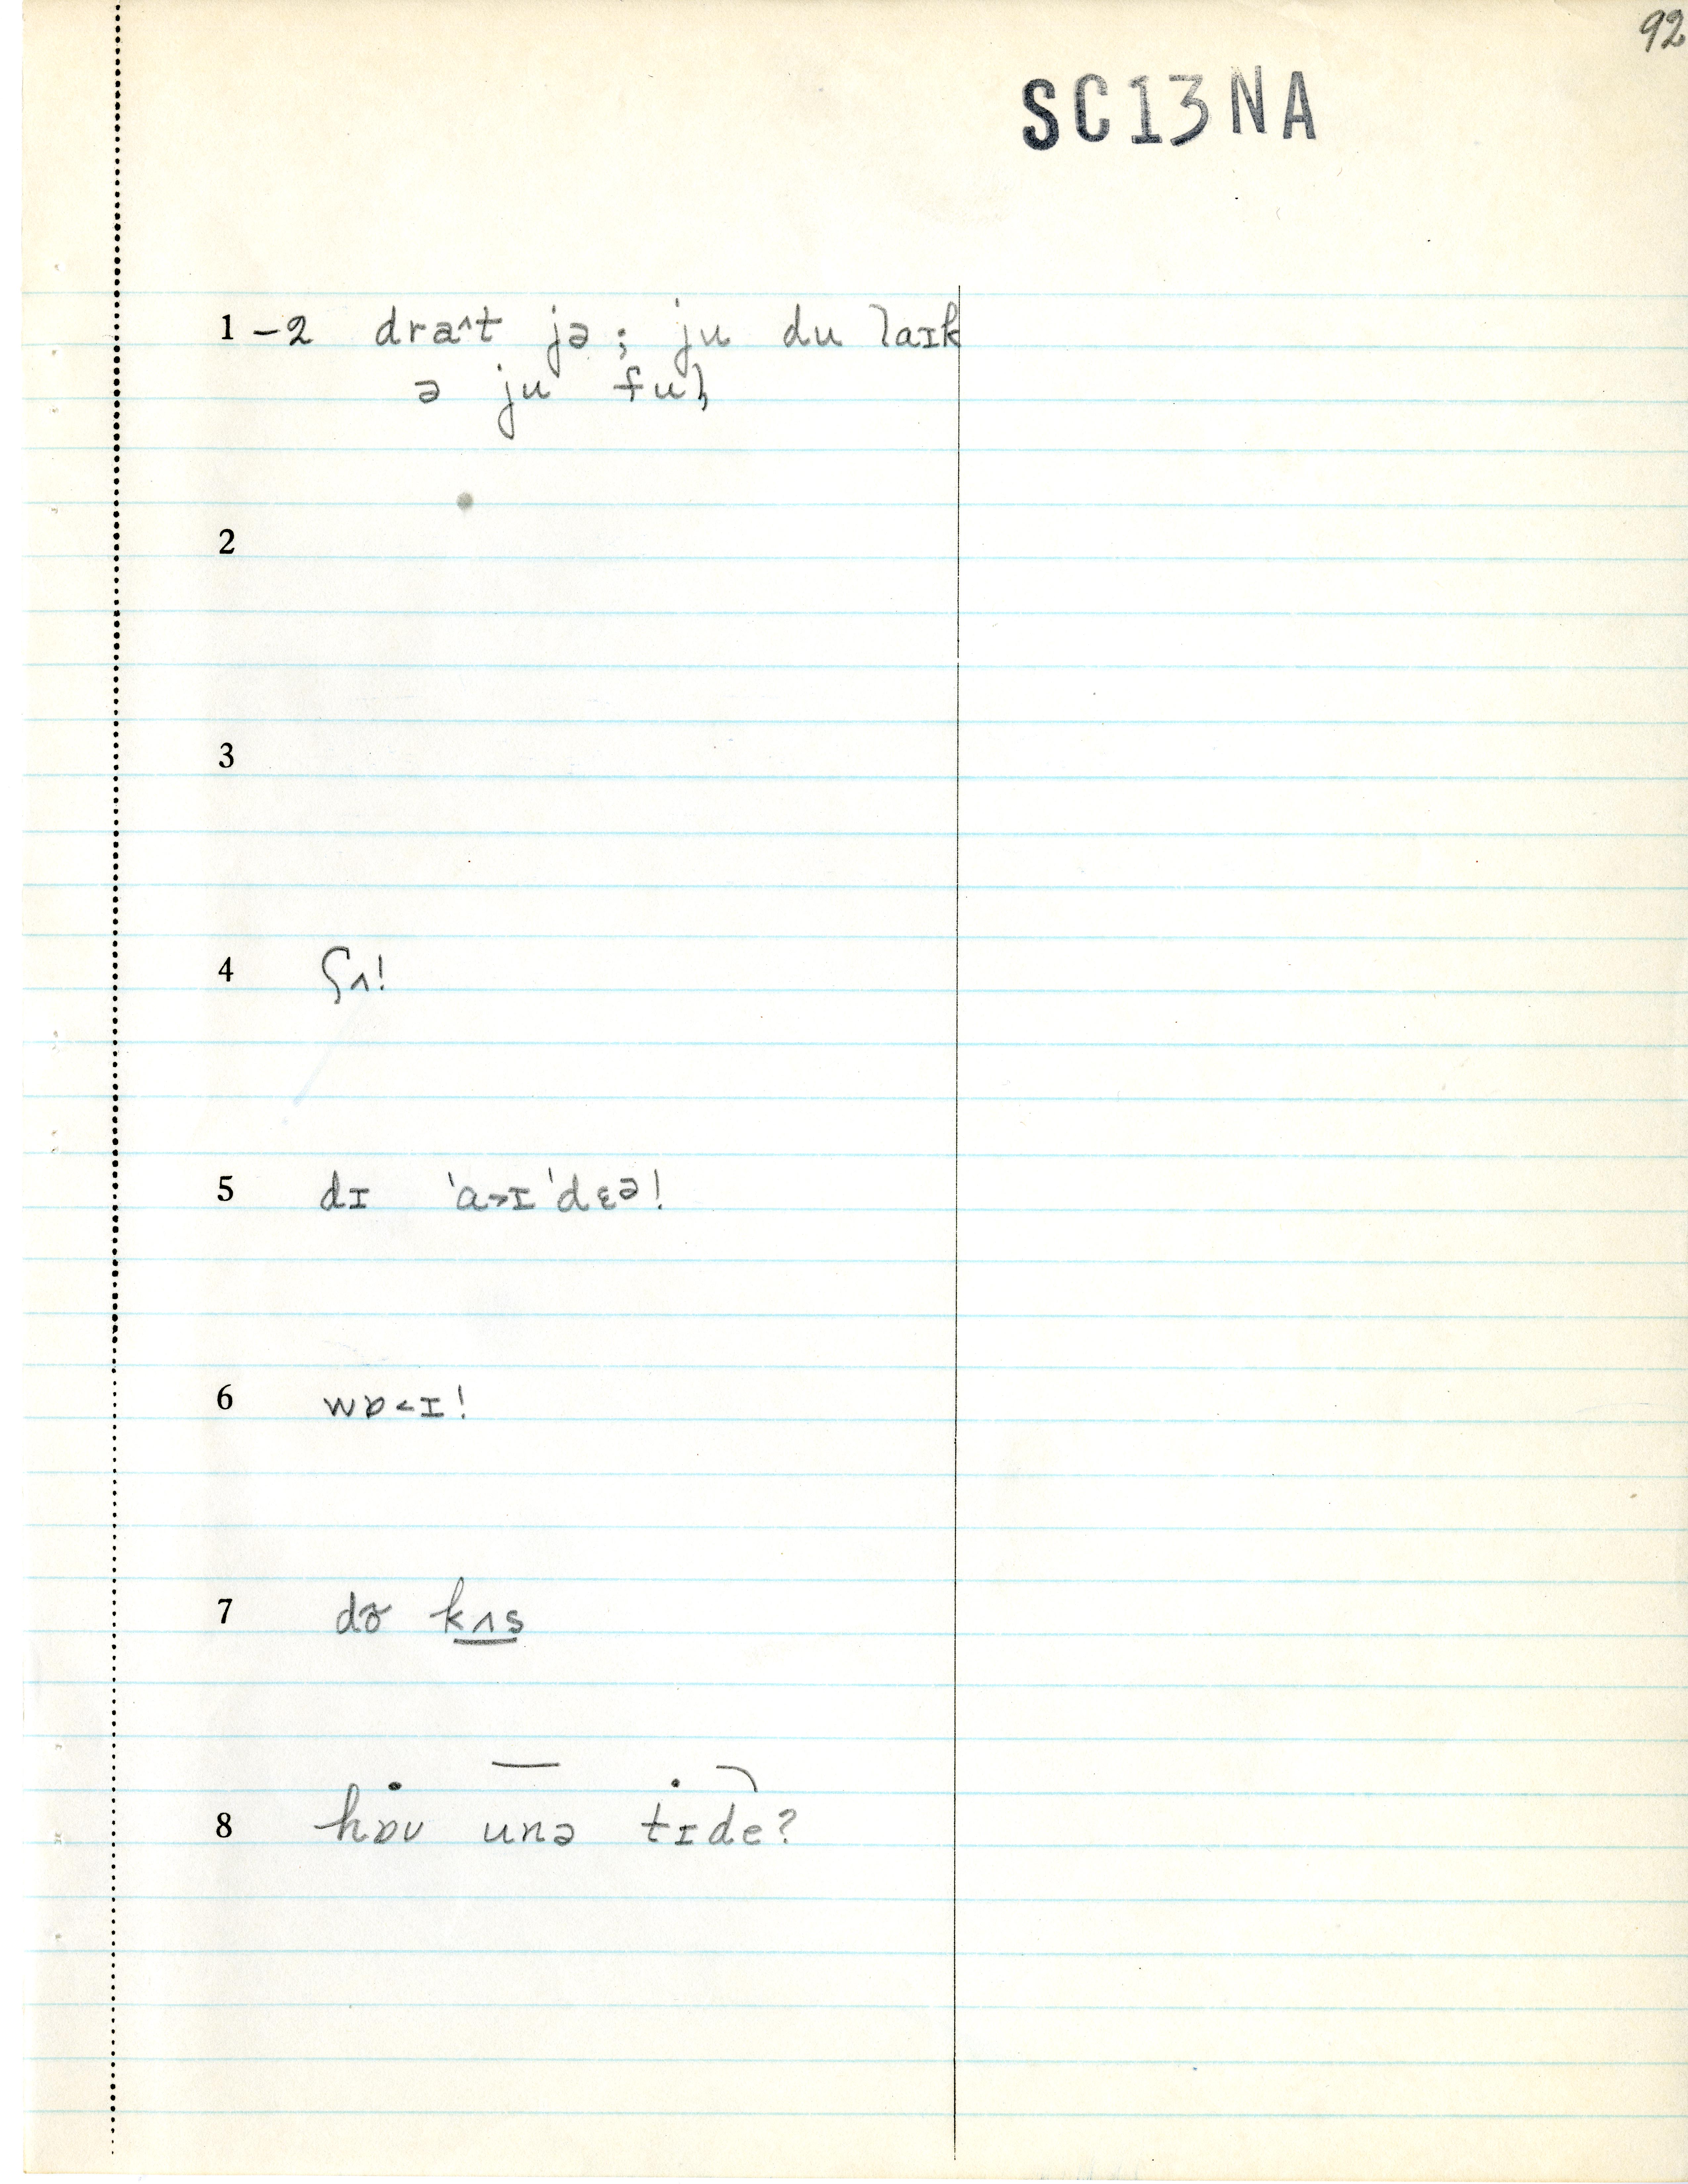 92
SC13NA
1 – 2 draˆt jə ; ju du laɪk
ə ju ful̩
2
3
4 ʃʌ!
5 dɪ ˈa>ɪˈdɛə!
6 wɒ<ɪ!
7 kʌs
8 hɒʊ unə tɪde?